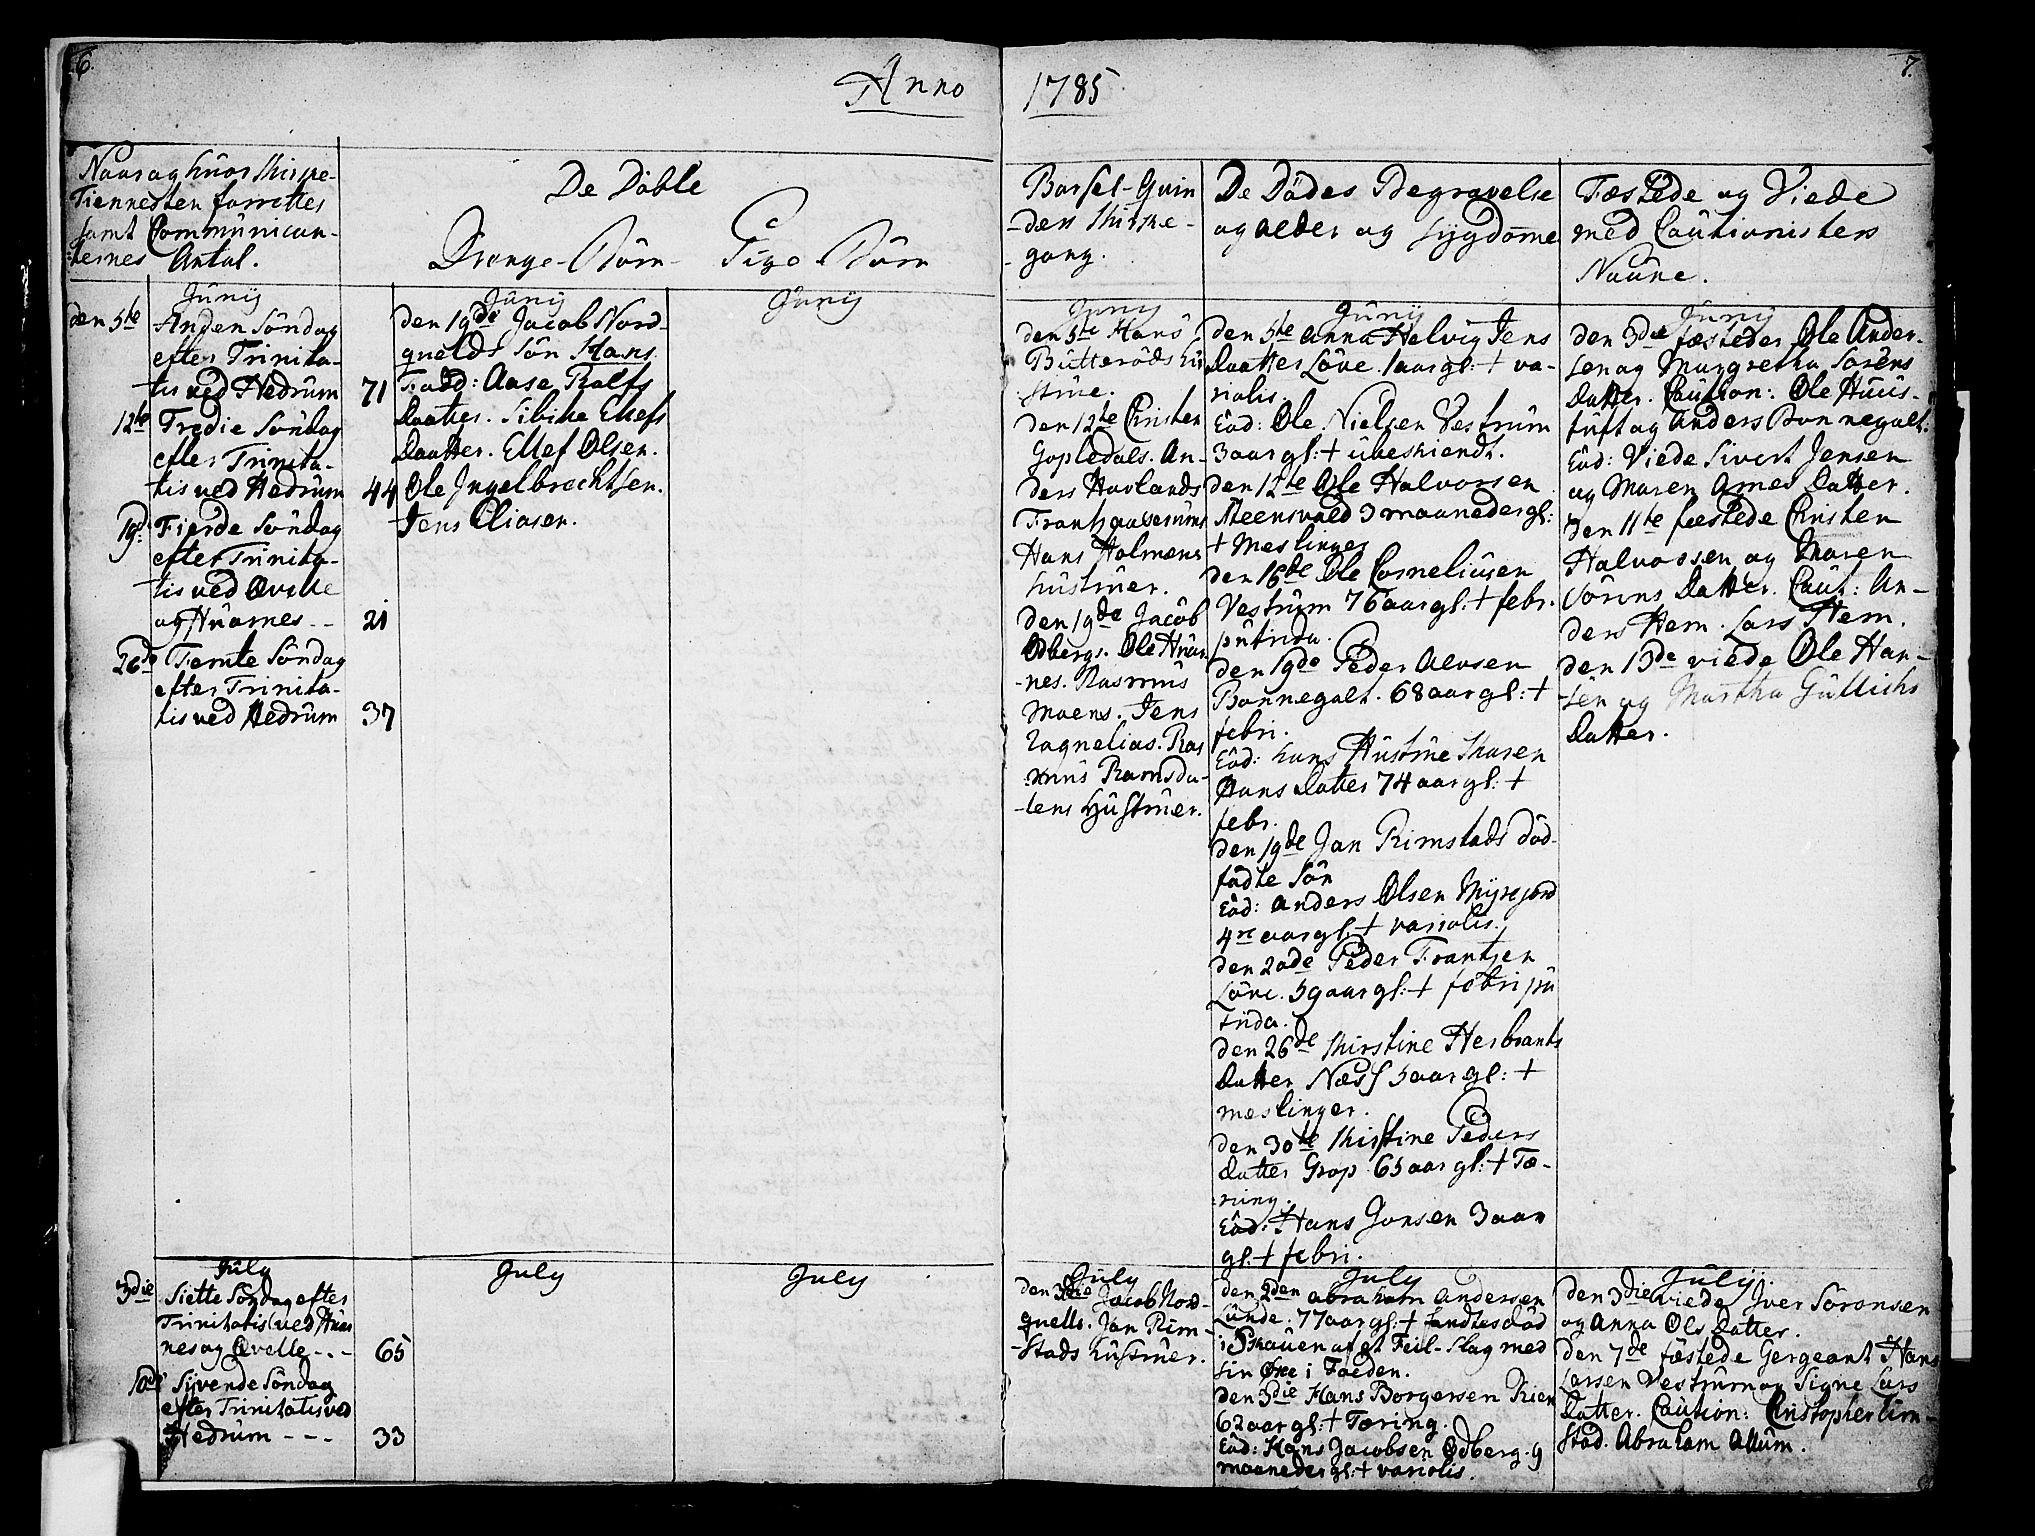 6.
Anno
1785
7.
Naar og hvor Kirke-
Tiennesten forrettes
samt Communican-
ternes Antal.
De Döbte
Drenge-Börn
Pige Börn
Barsel-Qvin
-ders Kirke-
-gang.
De Dödes Begravelse
og alder og Sygdomme
Fæstede og Viede
med Cautionisters
Navne.
Junij
den 5te Anden Söndag
efter Trinita-
tis ved Hedrum 71
12te Tredie Söndag
efter Trinita-
tis ved Hedrum 44
19de Fierde Söndag
efter Trinita-
tis ved Qvelle
og Hvarnes - - 21
26de Femte Söndag
efter Trinita-
tis ved Hedrum 37
Junij
den 19de Jacob Nord-
quelds Sön Hans.
Fadd: Aase Rolfs
Daatter. Sibille Ellefs
Daatter. Ellef Olsen.
Ole Ingelbrechtsen.
Jens Eliasen.
Junij
Junij
den 5te Hans
Butteröds Hu
strue.
den 12te Christen
Gopledals. An-
ders Havlands
Hans Holmens
Hustruer.
den 19de Jacob
Odbergs. Ole Hvar
-nes. Rasmus
Moens. Jens
Ras
mus Ramsda-
-lens Hustruer.
Junij
den 5te Anna Helvig Jens
Daatter Löve. 1 aar gl: + va-
riolis.
Eod: Ole Nielsen Vestrum
3 aar gl: + ubeskiendt.
den 12te Ole Halvorsen
Steensvald 3 maaneder gl:
+ Meslinger
den 16de Ole Corneliusen
Vestrum 76 aar gl: + febr.
putrida.
den 19de Peder Alvsen
Bonnegalt. 68 aar gl: +
febri.
Eod: hans Hustrue Karen
Hans Datter 74 aar gl: +
febr.
den 19de Jan Rimstads död-
födte Sön
Eod: Anders Olsen Myrejord
4re aar gl. + variolis.
den 20de Peder Frantzen
Löve. 59 aar gl: + febri pu
trida.
den 26de Kirstine Herbrants
Datter Næss 5 aar gl: +
meslinger.
den 30te Kirstine Peders
Datter Grop 65 aar gl: + Tæ-
ring.
Eod: Hans Jonsen 3 aar
gl: + febri.
Junij
den 3die fæstedes Ole Ander-
sen og Margretha Sörens
Datter. Caution: Ole Huus-
tuft og Anders Bonnegalt:
Eod: Viede Sivert Jensen
og Maren Arnes Datter.
den 11te fæstede Christen
Halvorsen og Maren
Sörens Datter. Caut: An-
ders Hem. Lars Hem.
den 13de viede Ole Han-
sen og Martha Gullichs
Datter.
July
3die Siette Söndag efter
Trinitatis ved Hvar
nes og Qvelle - - - 65
10de Syvende Söndag
efter Trinitatis ved
Hedrum - - - 33
July
July
July
den 3die Jacob Nord-
quells. Jan Rim-
-stads Hustruer.
July
den 2den Abraham Andersen
Lunde. 77 aar gl: + fandtes död
i Skauen af et Feil-Slag med
sin Öxe i Foeden.
den 3die Hans Borgersen Kien
62 aar gl: + Tæring.
Eod: Hans Jacobsen Odberg. 9
maaneder gl: + variolis.
July.
den 3die viede Iver Sörensen
og Anna Ols Datter.
den 7de fæstede Sergeant Hans
Larsen Vestrum og Signe Lars
Datter. Caution: Christopher Lim-
stad. Abraham Allum.